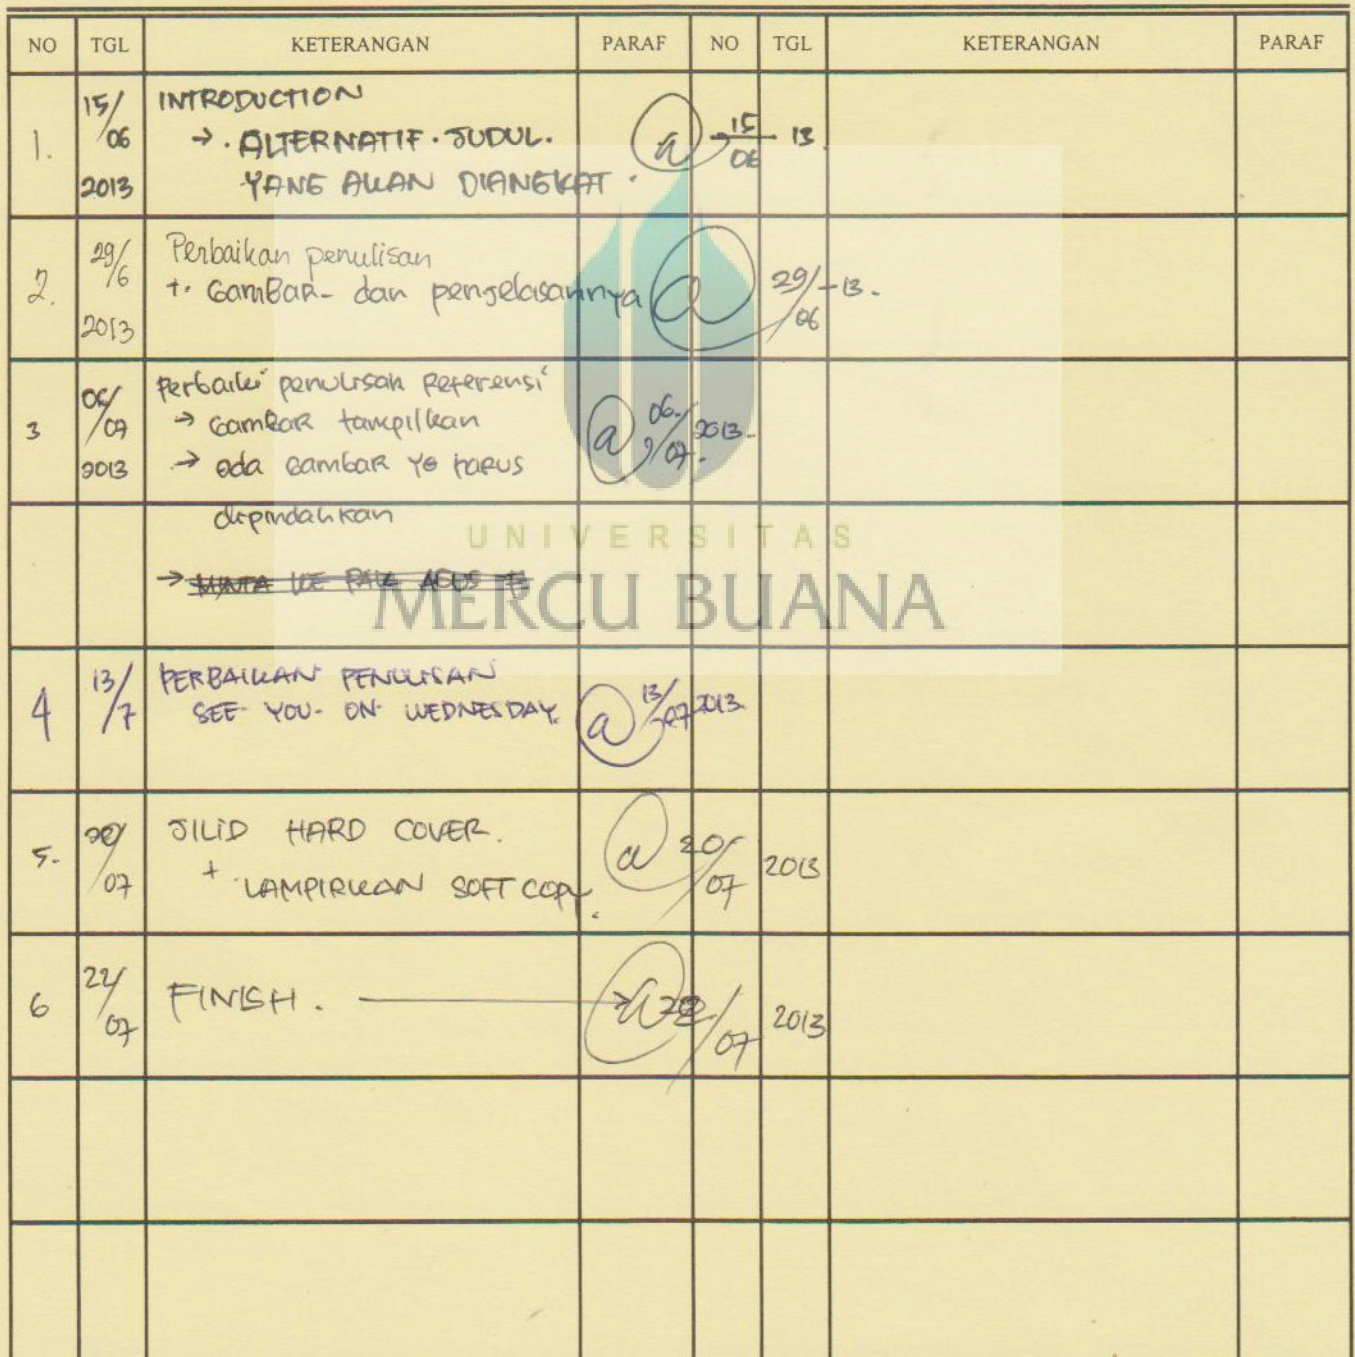 NO TGL KETERANGAN PARAF NO TGL KETERANGAN PARAF
1. 15/06 2013 INTRODUCTION
→ . ALTERNATIF . JUDUL.
YANG AKAN DIANGKAT .
a 15/06 13
2. 29/6 2013 Perbaikan penulisan
+. GamBaR- dan penjelasannya
a 29/06 -13-
3 06/07 2013 Perbaiki penulisan Referensi
→ Gambar tampilkan
→ ada Gambar Yg harus
dipindahkan
a 06/07. 2013-
→ MINTA KE PAK AGUS
UNIVERSITAS
MERCU BUANA
4 13/7 PERBAIKAN PENULISAN
SEE YOU- ON WEDNESDAY.
a 13/07 2013
5. 20/07 JILID HARD COVER.
+ LAMPIRKAN SOFT COPY.
a 20/07 2013
6 22/07 FINISH.
a 22/07 2013